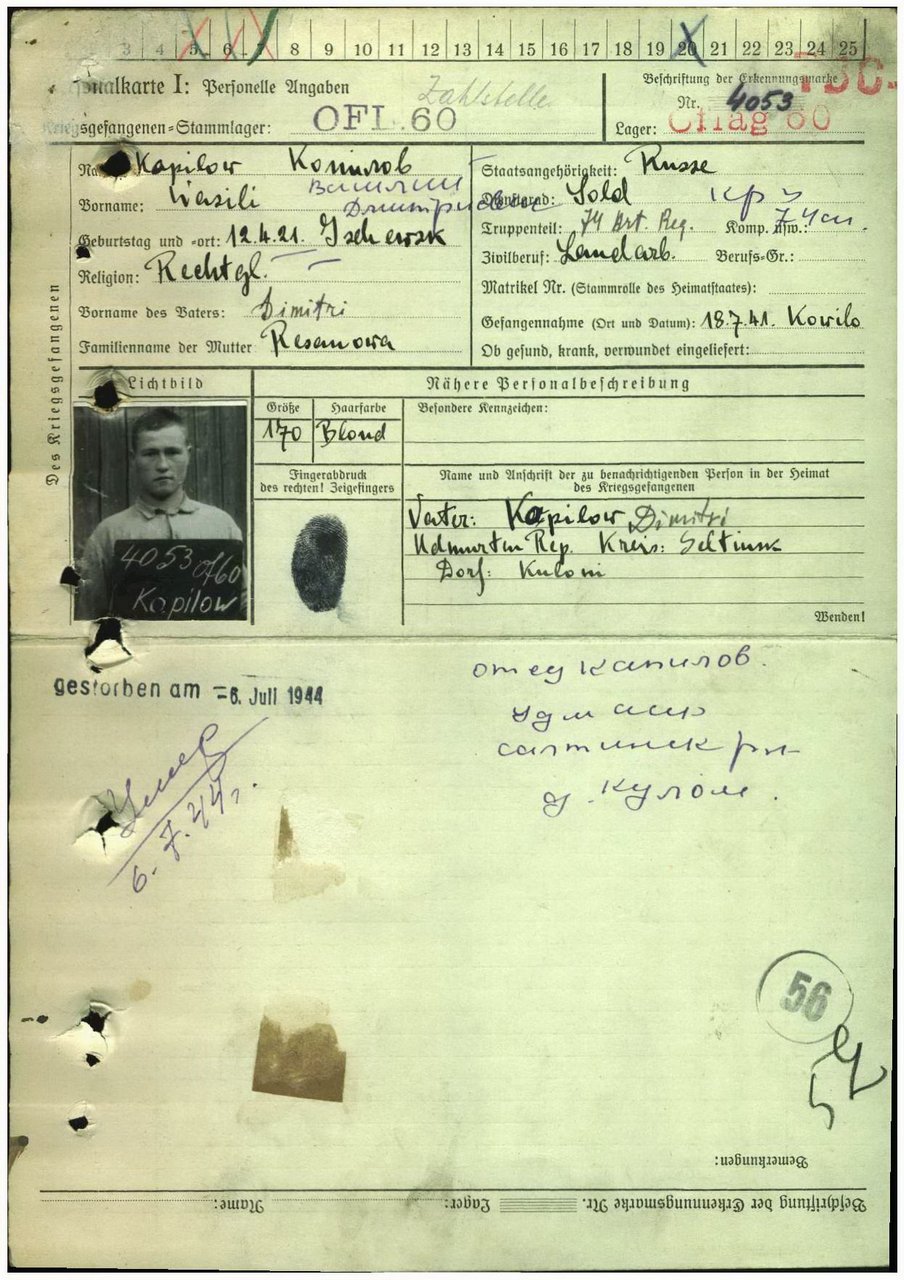 3 4 5 6 7 8 9 10 11 12 13 14 15 16 17 18 19 20 21 22 23 24 25
nalkarte I: Personelle Angaben Zahlstelle
Kriegsgefangenen-Stammlager: OFL. 60
Beschriftung der Erkennungsmarke
Nr. 4053
Lager: Oflag 60
Des Kriegsgefangenen
Na Kapilow
Vorname: Wasili Василий
Дмитриевич
Geburtstag und -ort: 12.4.21.
Religion: Rechtgl.
Vorname des Vaters: Dimitri
Familienname der Mutter Resanowa
Staatsangehörigkeit: Russe
Dienstgrad: Sold кр
Truppenteil: 74 Art. Reg. Komp. usw.:
Zivilberuf: Landarb. Berufs-Gr.:
Matrikel Nr. (Stammrolle des Heimatstaates):
Gefangennahme (Ort und Datum): 18.7.41. Kowilo
Ob gesund, krank, verwundet eingeliefert:
Lichtbild
Nähere Personalbeschreibung
Größe Haarfarbe Besondere Kennzeichen:
170 Blond
Fingerabdruck
des rechten! Zeigefingers
4053 Of60
Kapilow
Name und Anschrift der zu benachrichtigenden Person in der Heimat
des Kriegsgefangenen
Vater: Kapilow Dimitri
Udmurten Rep. Kreis: Seltinsk
Dorf: Kuloni
Wenden!
gestorben am -6. Juli 1944
Умер
6.7.44г.
отец Капилов.
удм асср
салтинск рн
д. Кулом.
56
Bemerkungen:
Beschriftung der Erkennungsmarke Nr. Lager: Name: